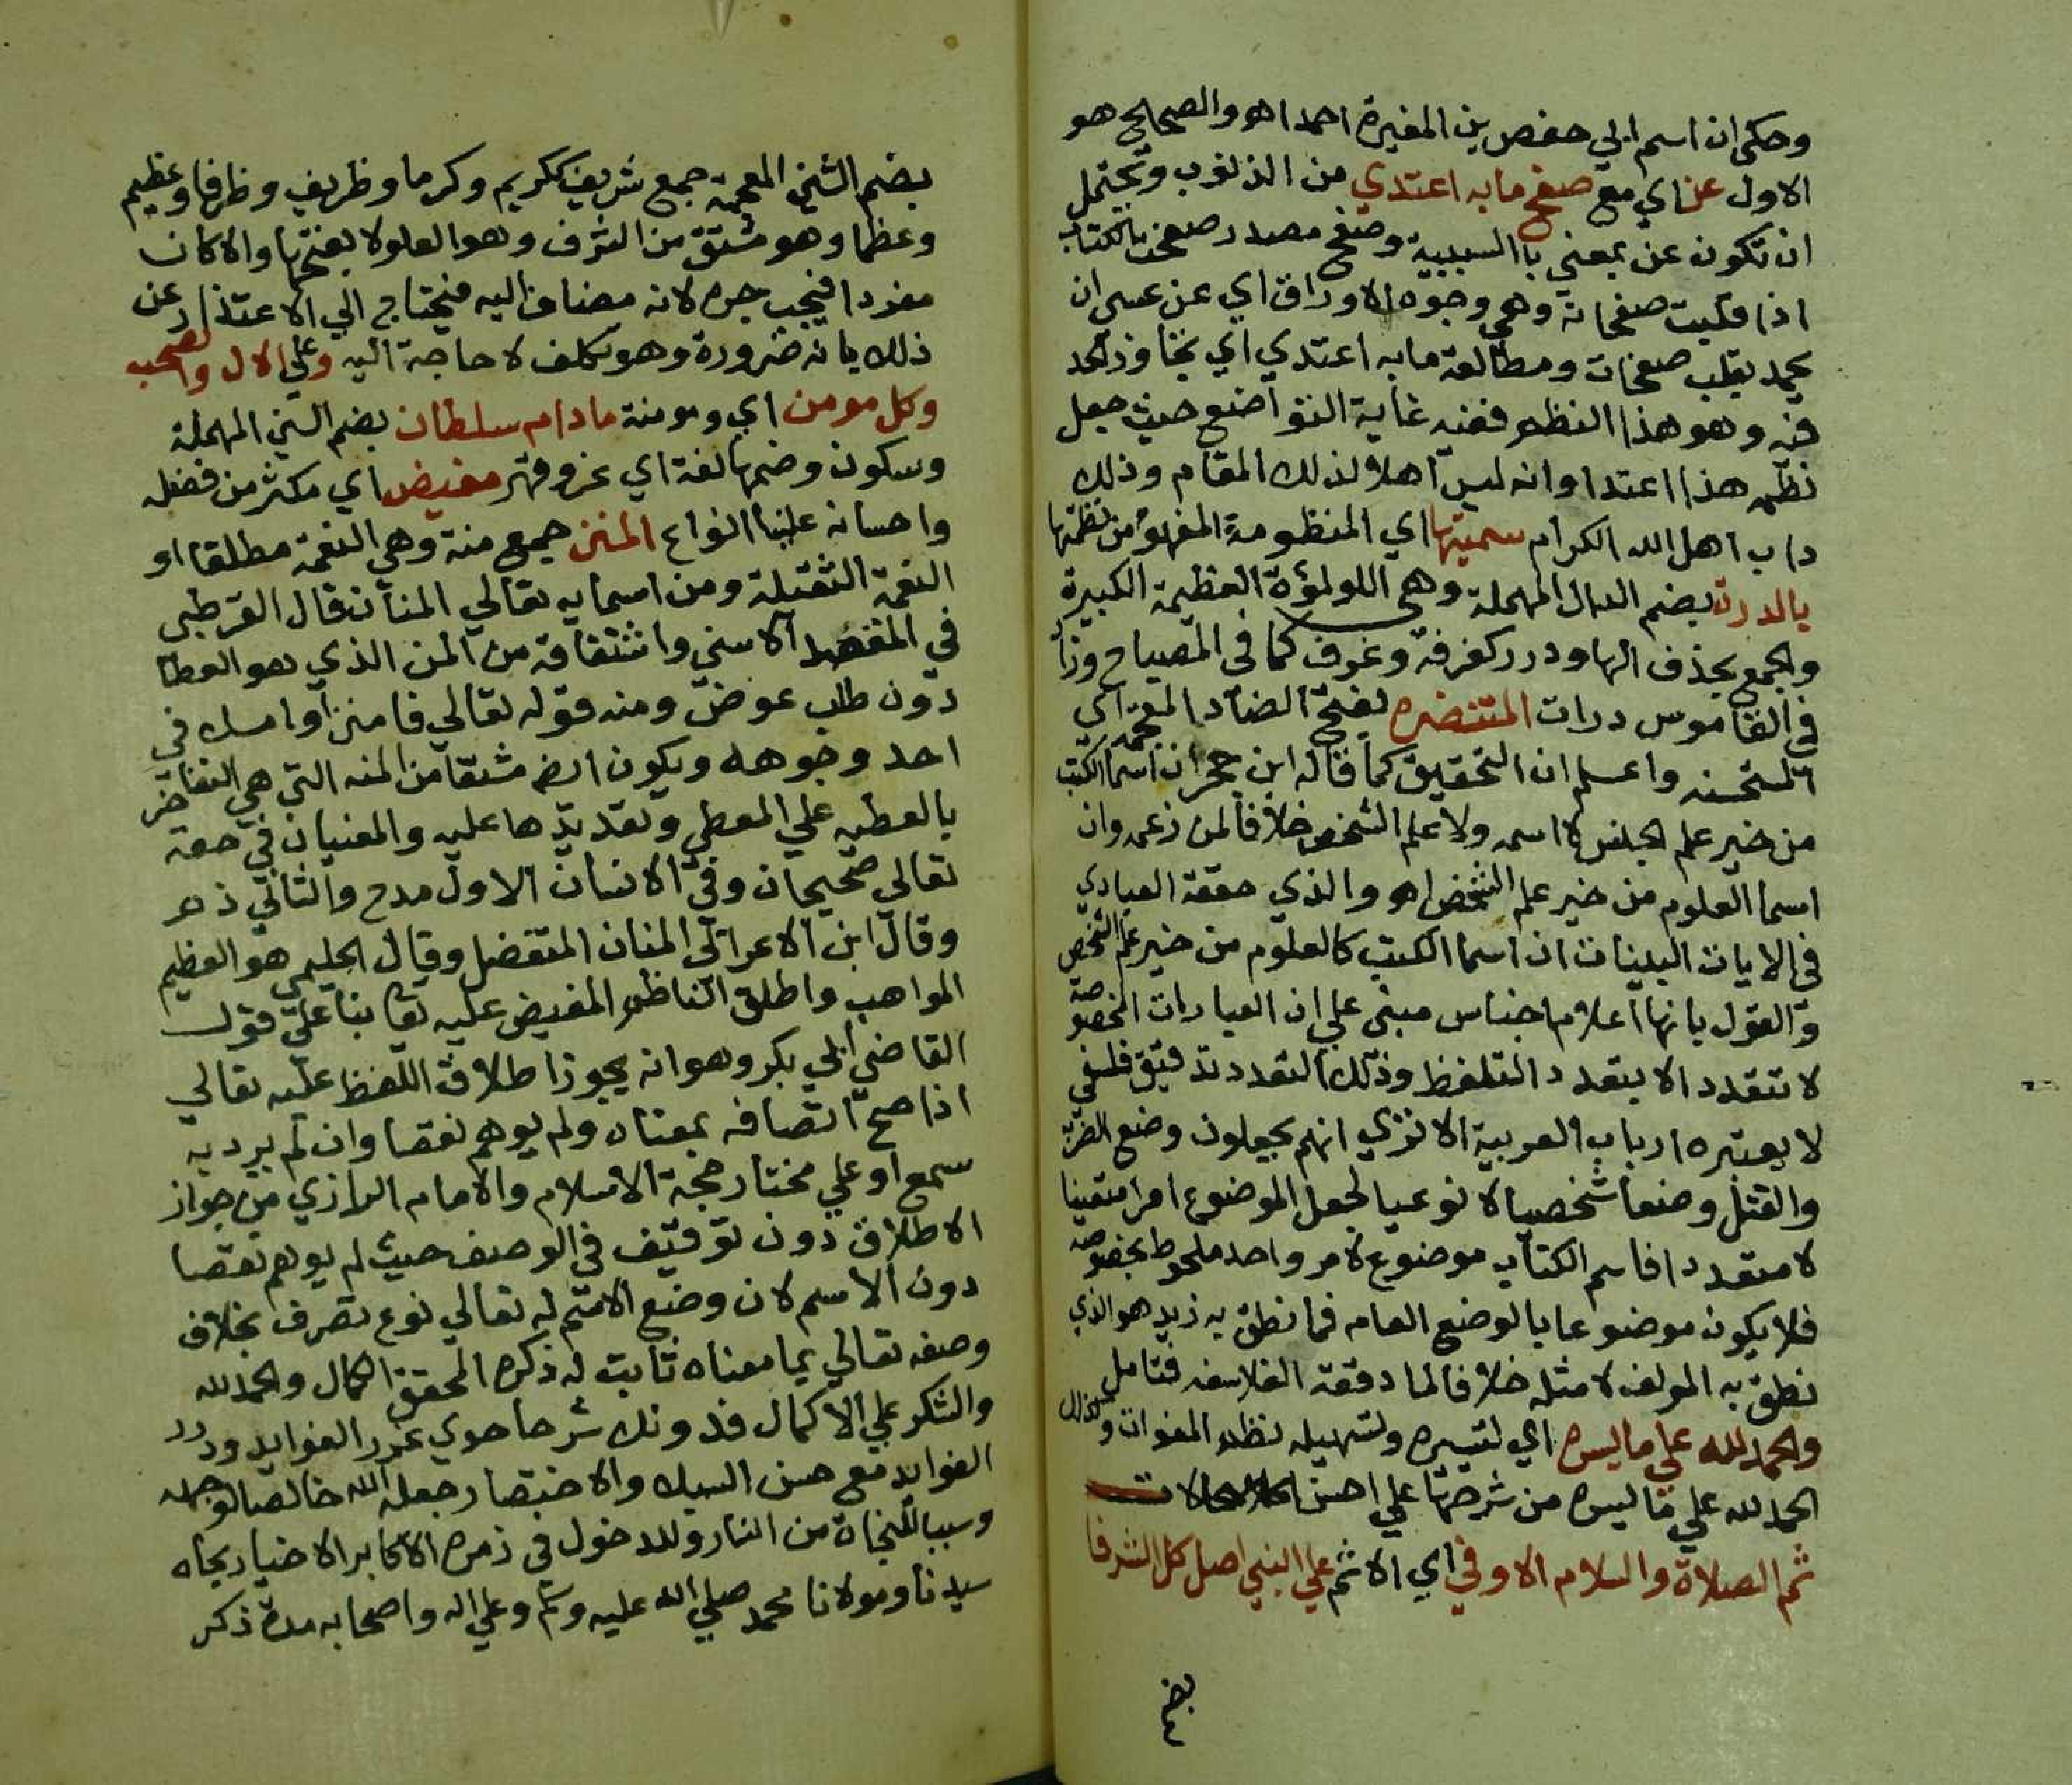 وحكى ان اسم ابي حفص بن المغيرة احمد اهو والصحيح هو
الاول عن اي مع صفح مابه اعتدي من الذنوب ويحتمل
ان تكون عن بمعني با السببية وصفح مصدر صفحت الكتاب
اذا قلبت صفحاته وهي وجوه الاوراق اي عن عسى ان
يحمد بقلب صفحات ومطالعة مابه اعتدي اي تجاوز الحد
فيه وهو هذا النظم ففيه غاية التواضع حيث جعل
نظمه هذا اعتدا وانه ليس اهلا لذلك المقام وذلك
داب اهل الله الكرام سميتها اي المنظومة المفهومة من نظمتها
بالدرة بضم الدال المهملة وهي اللولؤة العظيمة الكبيرة
والجمع بحذف الها ودرر كغرفة وغرف كما في المصباح وزاد
في القاموس درات المنتضره بفتح الضاد المعجمة اي
المستحسنه واعلم ان التحقيق كما قاله ابن حجر ان اسما الكتب
من خير علم الجنس لا اسمه ولا علم الشخص خلافا لمن زعمه وان
اسما العلوم من خير علم الشخص اهو والذي حققه العبادي
في الايات البينات ان اسما الكتب كالعلوم من خير علم الشخص
والقول بانها اعلام اجناس مبني علي ان العبارات المخصوصة
لا تتعدد الا بتعدد التلفظ وذلك التعدد تدقيق فلسفي
لا يعتبره ارباب العربية الا تري انهم يجعلون وضع الضرب
والقتل وضعا شخصيا لا نوعيا لجعل الموضوع امرا متعينا
لا متعددا فاسم الكتاب موضوع لامر واحد ملحوظ بخصوصه
فلا يكون موضوعا بالوضع العام فما نطق به زيد هو الذي
نطق به المولف لا مثله خلافا لما دققه الفلاسفه فتامل
والحمد لله علي ما ليسره اي لتيسيره ولتسهيله نظم المغوان وكذلك
الحمد لله علي ما ليسره من شرحها علي احسن الحالات
ثم الصلاة والسلام الاوفي اي الاتم علي النبي اصل كل الشرفا
بضم
بضم الشين المعجمة جمع شريف ككريم وكرما وظريف وظرفا وعظيم
وعظما وهو مشتق من الشرف وهو العلو لا بفتحها والا كان
مفردا فيجب جره لانه مضاف اليه فيحتاج الي الاعتذار عن
ذلك بانه ضرورة وهو تكلف لا حاجة اليه وعلي الال والصحبه
وكل مومن اي ومومنة مادام سلطان بضم السين المهملة
وسكون وضمها لغة اي عز وقهر مفيض اي مكثر من فضله
واحسانه علينا انواع المنن جميع منة وهي النعمة مطلقا او
النعمة الثقيلة ومن اسمايه تعالي المنان قال القرطبي
في المقصد الاسني واشتقاقه من المن الذي هو العطا
دون طلب عوض ومنه قوله تعالي فامنن او امسك في
احد وجوهه ويكون ايضا مشتقا من المنه التي هي التفاخر
بالعطيه علي المعطي وتعديدها عليه والمعنيان في حقه
تعالي صحيحان وفي الانسان الاول مدح والثاني ذم
وقال ابن الاعرابي المنان المتفضل وقيال الحليمي هو العظيم
المواهب واطلق الناظم المفيض عليه تعا بنا علي قول
القاضي ابي بكر وهو انه يجوز اطلاق اللفظ عليه تعالي
اذا صح اتصافه بمعناه ولم يوهم نقصا وان لم يرد به
سمع او علي مختار حجة الاسلام والامام الرازي من جواز
الاطلاق دون توقيف في الوصف حيث لم يوهم نقصا
دون الاسم لان وضع الاسم له تعالي نوع تصرف بخلاف
وصفه تعالي بما معناه ثابت له ذكره المحقق الكمال والحمد لله
والشكر علي الاكمال فدونك شرحا حوي غرر الفوايد ودرر
الفوايد مع حسن السبك والاختصار جعله الله خالصا لوجهه
وسببا للنجاة من النار وللدخول في زمره الاكابر الاخيار بجاه
سيدنا ومولانا محمد صلي الله عليه وسلم وعلي اله واصحابه مدة ذكر